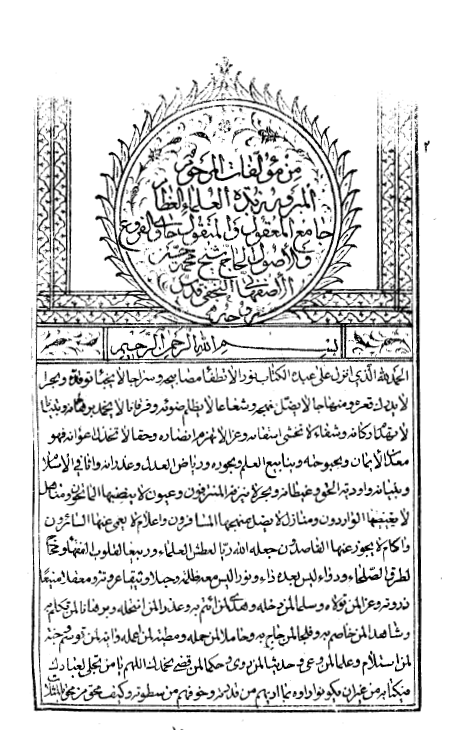 ٢
من مؤلفات المرحوم
المبرور زبدة العلماء العظام
جامع المعقول والمنقول حاوي الفروع
والأصول الحاج شيخ محمد حسين
الأصفهاني النجفي قدس
بسم الله الرحمن الرحيم
الحمد لله الذي انزل على عبده الكتاب نورا لا تطفأ مصابيحه وسراجا لا يخبو توقده وبحرا
لا يدرك قعره ومنهاجا لا يضل نهجه وشعاعا لا يظلم ضوئه وفرقانا لا يخمد برهانه وتبيانا
لا تهدم اركانه وشفاء لا تخشى اسقامه وعزا لا تهزم انصاره وحقا لا تخذل اعوانه فهو
معدن الايمان وبحبوحته وينابيع العلم وبحوره ورياض العدل وغدرانه واثافي الاسلام
وبنيانه واودية الحق وغيطانه وبحر لا ينزفه المنتزفون وعيون لا ينضبها الماتحون ومناهل
لا يغيضها الواردون ومنازل لا يضل نهجها المسافرون واعلام لا يعمى عنها السائرون
واكام لا يجوز عنها القاصدون جعله الله ريا لعطش العلماء وربيعا لقلوب الفقهاء ومحاج
لطرق الصلحاء ودواء ليس بعده داء ونورا ليس معه ظلمة وحبلا وثيقا عروته ومعقلا منيعا
ذروته وعزا لمن تولاه وسلما لمن دخله وهدى لمن ائتم به وعذرا لمن انتحله وبرهانا لمن تكلم به
وشاهدا لمن خاصم به وفلجا لمن حاج به وحاملا لمن حمله ومطية لمن اعمله واية لمن توسم وجنة
لمن استلأم وعلما لمن وعى وحديثا لمن روى وحكما لمن قضى نحمدك اللهم يا من تجلى لعباده
في كتابه من غير ان يكونوا راوه بما اراهم من قدرته وخوفهم من سطوته وكيف محق من محق بالمثلات